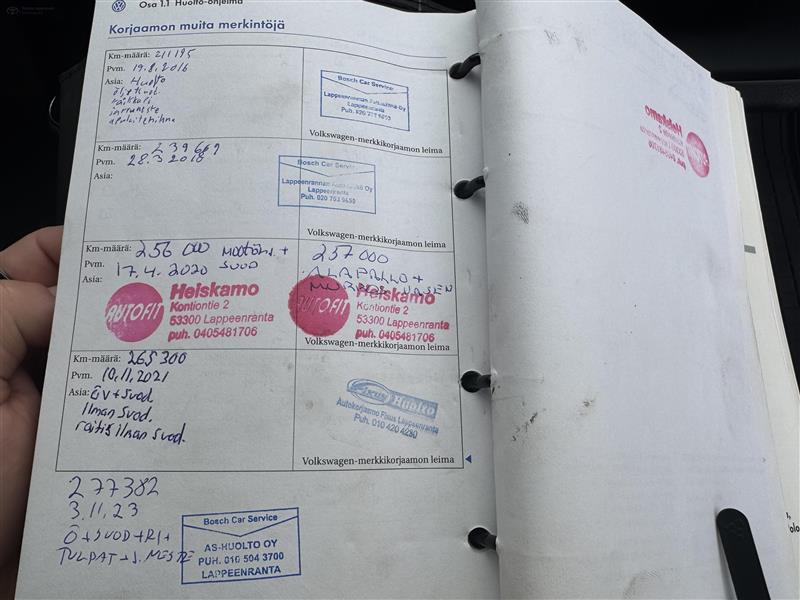 Osa 1.1 Huolto-ohjelma
Korjaamon muita merkintöjä
Km-määrä: 211195
Pvm. 19.8.2016
Asia: Huolto
Bosch Car Service
Lappeenranta
Volkswagen-merkkikorjaamon leima
Km-määrä: 239669
Pvm. 28.3.2018
Asia:
Bosch Car Service
Lappeenrannan Oy
Lappeenranta
Puh. 020 703 9650
Volkswagen-merkkikorjaamon leima
Km-määrä: 256 000 MOOTÖRI. +
Pvm. 17.4.2020 SUOD
Asia:
AUTOFIT
Helskamo
Kontiontie 2
53300 Lappeenranta
puh. 0405481706
257000
ALAPALLO +
VASEN
AUTOFIT
Helskamo
Kontiontie 2
53300 Lappeenranta
puh. 0405481706
Volkswagen-merkkikorjaamon leima
Km-määrä: 265300
Pvm. 10.11.2021
Asia: ÖV + Suod.
Ilman Suod.
raitisilman Suod.
Fixus Huolto
Autokorjaamo Fixus Lappeenranta
Puh. 010 420 4290
Volkswagen-merkkikorjaamon leima
277382
3.11.23
Ö+SUOD+RI+
TULPAT+J.NESTE
Bosch Car Service
AS-HUOLTO OY
PUH. 010 504 3700
LAPPEENRANTA